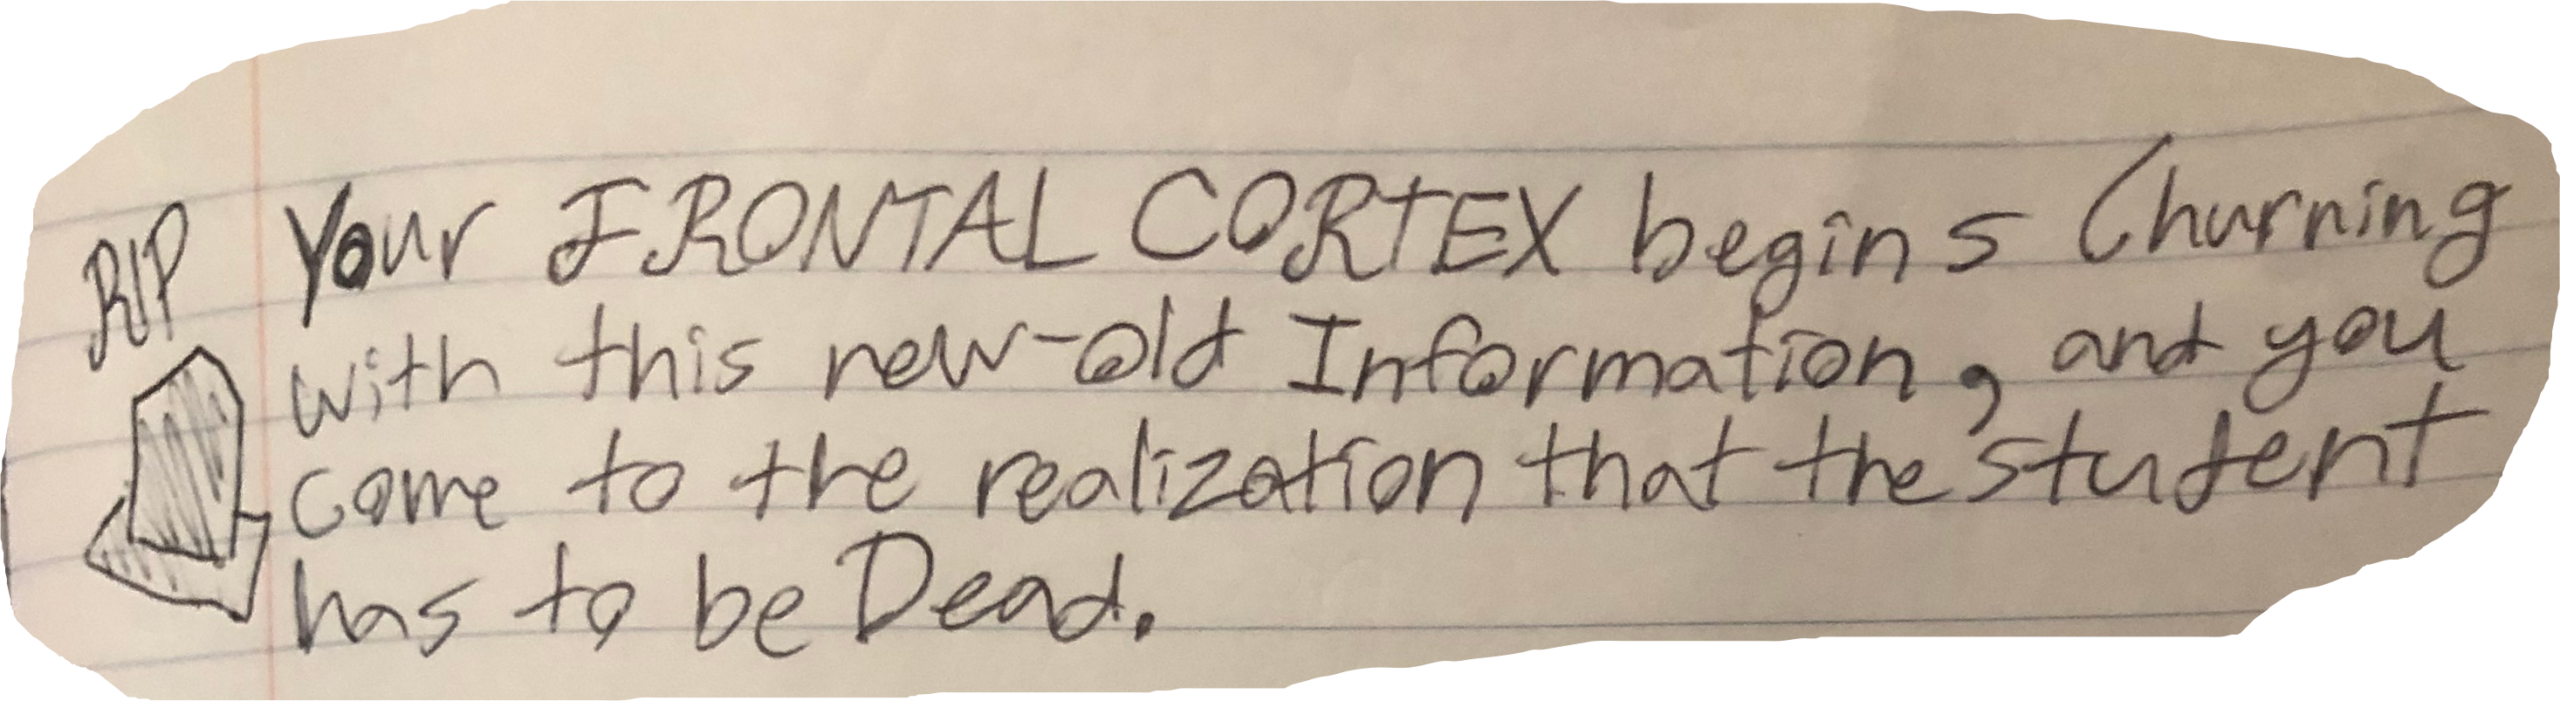 RIP
Your FRONTAL CORTEX begins Churning
with this new-old Information, and you
come to the realization that the student
has to be Dead.